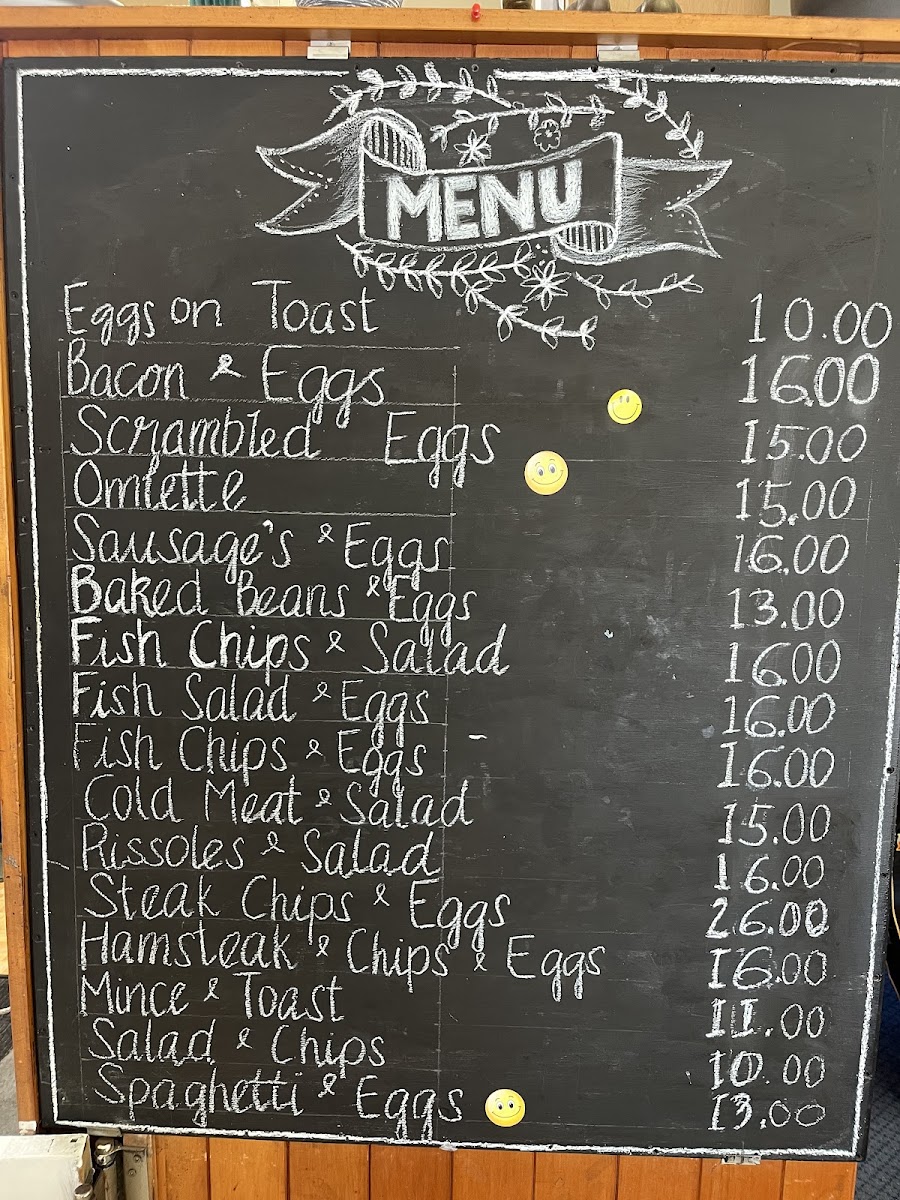 MENU
Eggs on Toast 10.00
Bacon & Eggs 16.00
Scrambled Eggs 15.00
Omlette 15.00
Sausage's & Eggs 16.00
Baked Beans & Eggs 13.00
Fish Chips & Salad 16.00
Fish Salad & Eggs 16.00
Fish Chips & Eggs 16.00
Cold Meat & Salad 15.00
Rissoles & Salad 16.00
Steak Chips & Eggs 26.00
Hamsteak & Chips & Eggs 16.00
Mince & Toast 11.00
Salad & Chips 10.00
Spaghetti & Eggs 13.00